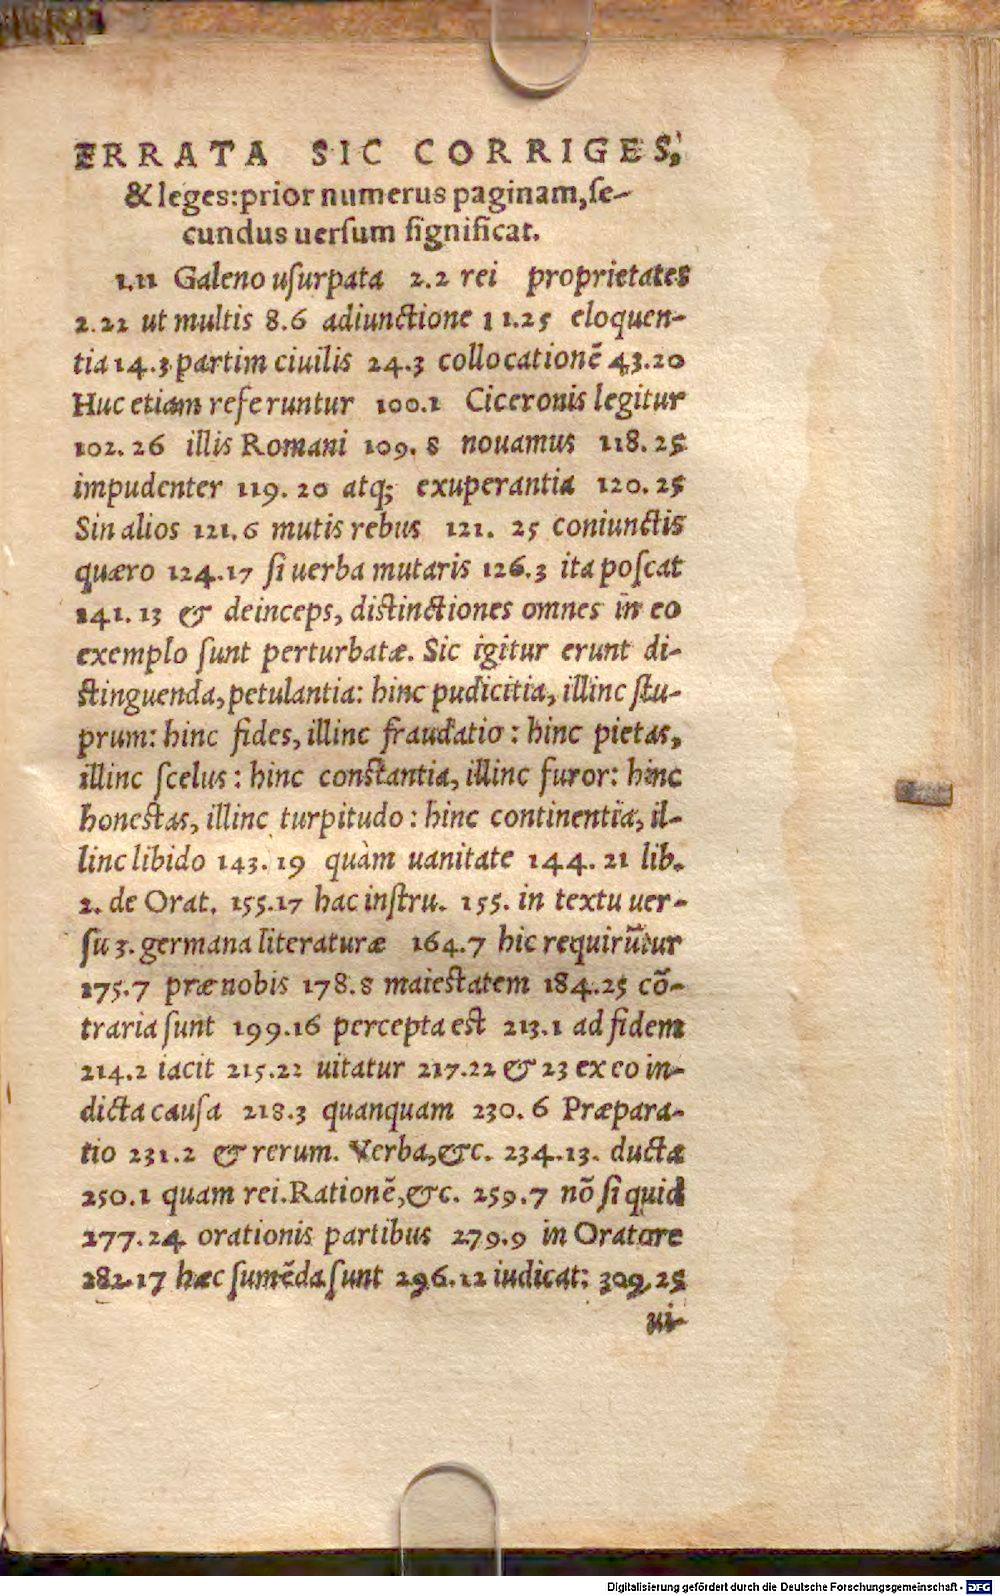 ERRATA SIC CORRIGES,
& leges: prior numerus paginam, ſe-
cundus uerſum ſignificat.
1.11 Galeno uſurpata 2.2 rei proprietates
2.22 ut multis 8.6 adiunctione 11.25 eloquen-
tia 14.3 partim ciuilis 24.3 collocationē 43.20
Huc etiam referuntur 100.1 Ciceronis legitur
102.26 illis Romani 109.8 nouamus 118.25
impudenter 119.20 atq; exuperantia 120.25
Sin alios 121.6 mutis rebus 121.25 coniunctis
quæro 124.17 ſi uerba mutaris 126.3 ita poſcat
141.13 & deinceps, diſtinctiones omnes in eo
exemplo ſunt perturbatæ. Sic igitur erunt di-
ſtinguenda, petulantia: hinc pudicitia, illinc ſtu-
prum: hinc fides, illinc fraudatio: hinc pietas,
illinc ſcelus: hinc conſtantia, illinc furor: hinc
honeſtas, illinc turpitudo: hinc continentia, il-
linc libido 143.19 quàm uanitate 144.21 lib.
2. de Orat. 155.17 hac inſtru. 155. in textu uer-
ſu 3. germana literaturæ 164.7 hic requirūtur
175.7 præ nobis 178.8 maieſtatem 184.25 cō-
traria ſunt 199.16 percepta eſt 213.1 ad fidem
214.2 iacit 215.22 uitatur 217.22 & 23 ex eo in-
dicta cauſa 218.3 quanquam 230.6 Præpara-
tio 231.2 & rerum. Verba, &c. 234.13. ductæ
250.1 quam rei. Rationē, &c. 259.7 nō ſi quid
277.24 orationis partibus 279.9 in Oratore
282.17 hæc ſumēda ſunt 296.12 iudicat: 309.25
ui-
Digitalisierung gefördert durch die Deutsche Forschungsgemeinschaft - DFG